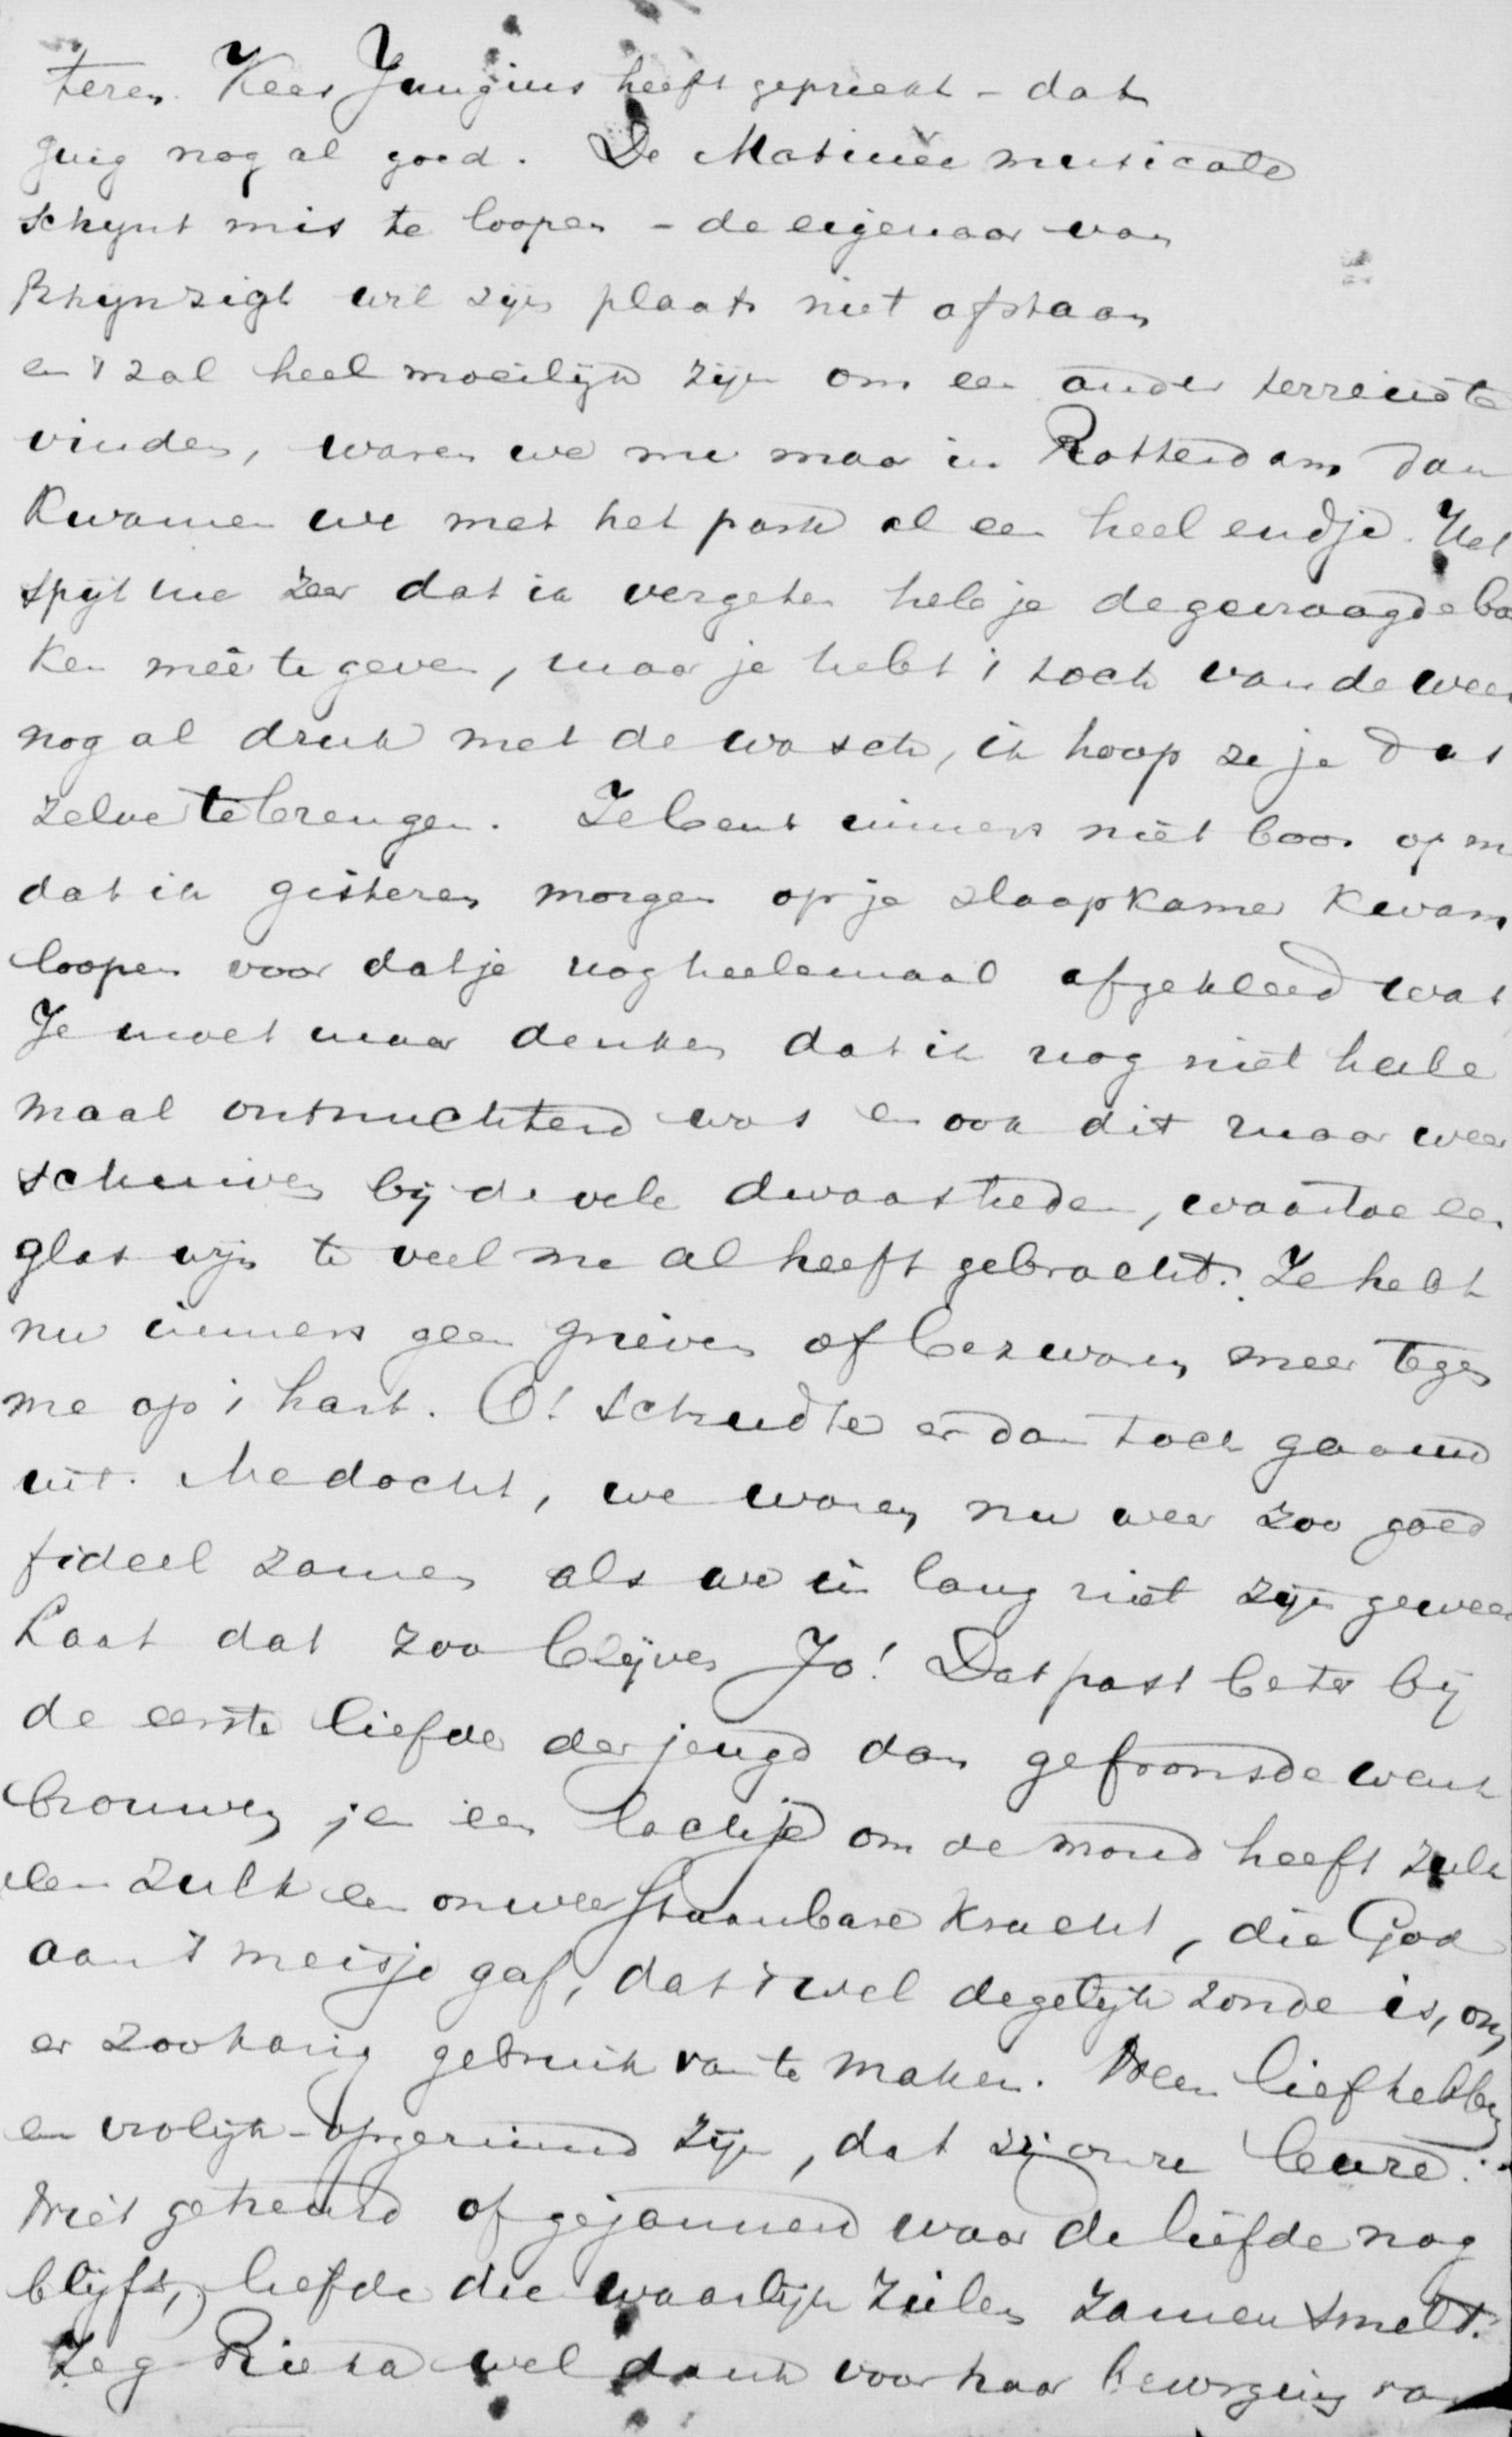 teren. Kees Jungius heeft gepreekt – dat
ging nog al goed. De Matinée musicale
schynt mis te loopen – de eigenaar van
Rhynzigt wil zijn plaats niet afstaan
en 't zal heel moeilijk zijn om een ander terrein te
vinden, waren we nu maar in Rotterdam dan
kwamen we met het park al een heel endje. Het
spijt me zeer dat ik vergeten heb je de gevraagde boe
ken meê te geven, maar je hebt 't toch van de week
nog al druk met de wasch, ik hoop ze je dus
zelve te brengen. Je bent immers niet boos op m
dat ik gisteren morgen op je slaapkamer kwam
loopen voor dat je nog heelemaal afgekleed was
Je moet maar denken dat ik nog niet heele
maal ontnuchterd was en ook dit maar weer
schuiven bij de vele dwaasheden, waartoe een
glas wijn te veel me al heeft gebracht. Je hebt
nu immers geen grieven of bezwaren meer tegen
me op 't hart. O! schudt ze er dan toch gaauw
uit. Me docht, we waren nu weer zoo goed
fideel zamen als we in lang niet zijn gewees
Laat dat zoo blijven Jo! Dat past beter bij
de eerste liefde der jeugd dan gefronsde wenk
brouwen, ja een lachje om de mond heeft zulk
een zulk een onweerstaanbare kracht, die God
aan 't meisje gaf, dat 't wel degelijk zonde is, om
er zoo karig gebruik van te maken. Neen liefhebben
en vrolijk-opgeruimd zijn, dat zij onze leuze.
Niet getreurd of gejammerd waar de liefde nog
blijft, liefde die waarlijk zielen zamen smelt.
Zeg Rieka wel dank voor haar bezorging van